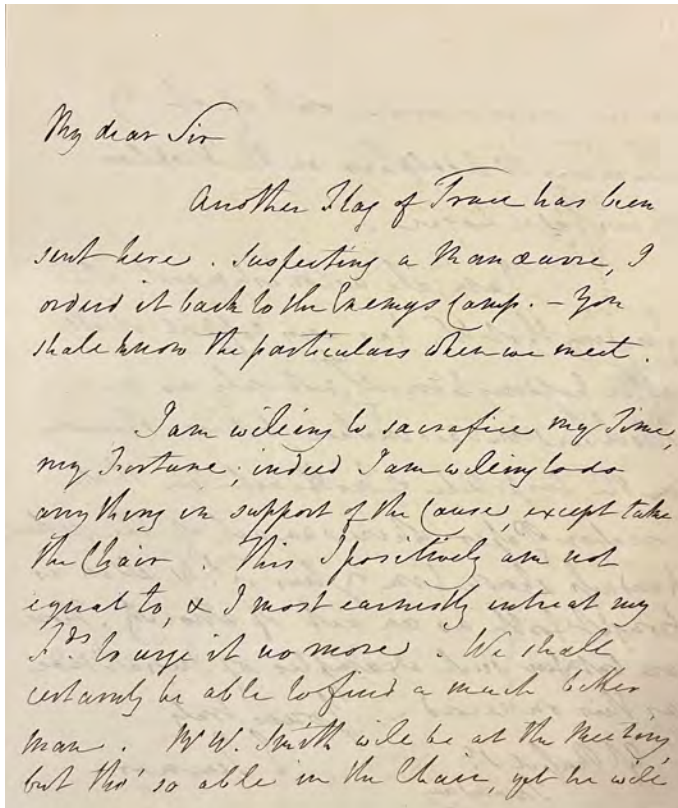 My dear Sir
Another Flag of Truce has been
sent here. Suspecting a Manœuvre, I
orderd it back to the Enemys Camp. – You
shall know the particulars when we meet.
I am willing to sacrafice my Time,
my Fortune; indeed I am willing to do
any thing in support of the Cause, except take
the Chair. This I positively am not
equal to, & I most earnestly intreat my
Fds to urge it no more. We shall
certainly be able to find a much better
man. Mr W. Smith will be at the Meeting,
but tho' so able in the Chair, yet he will